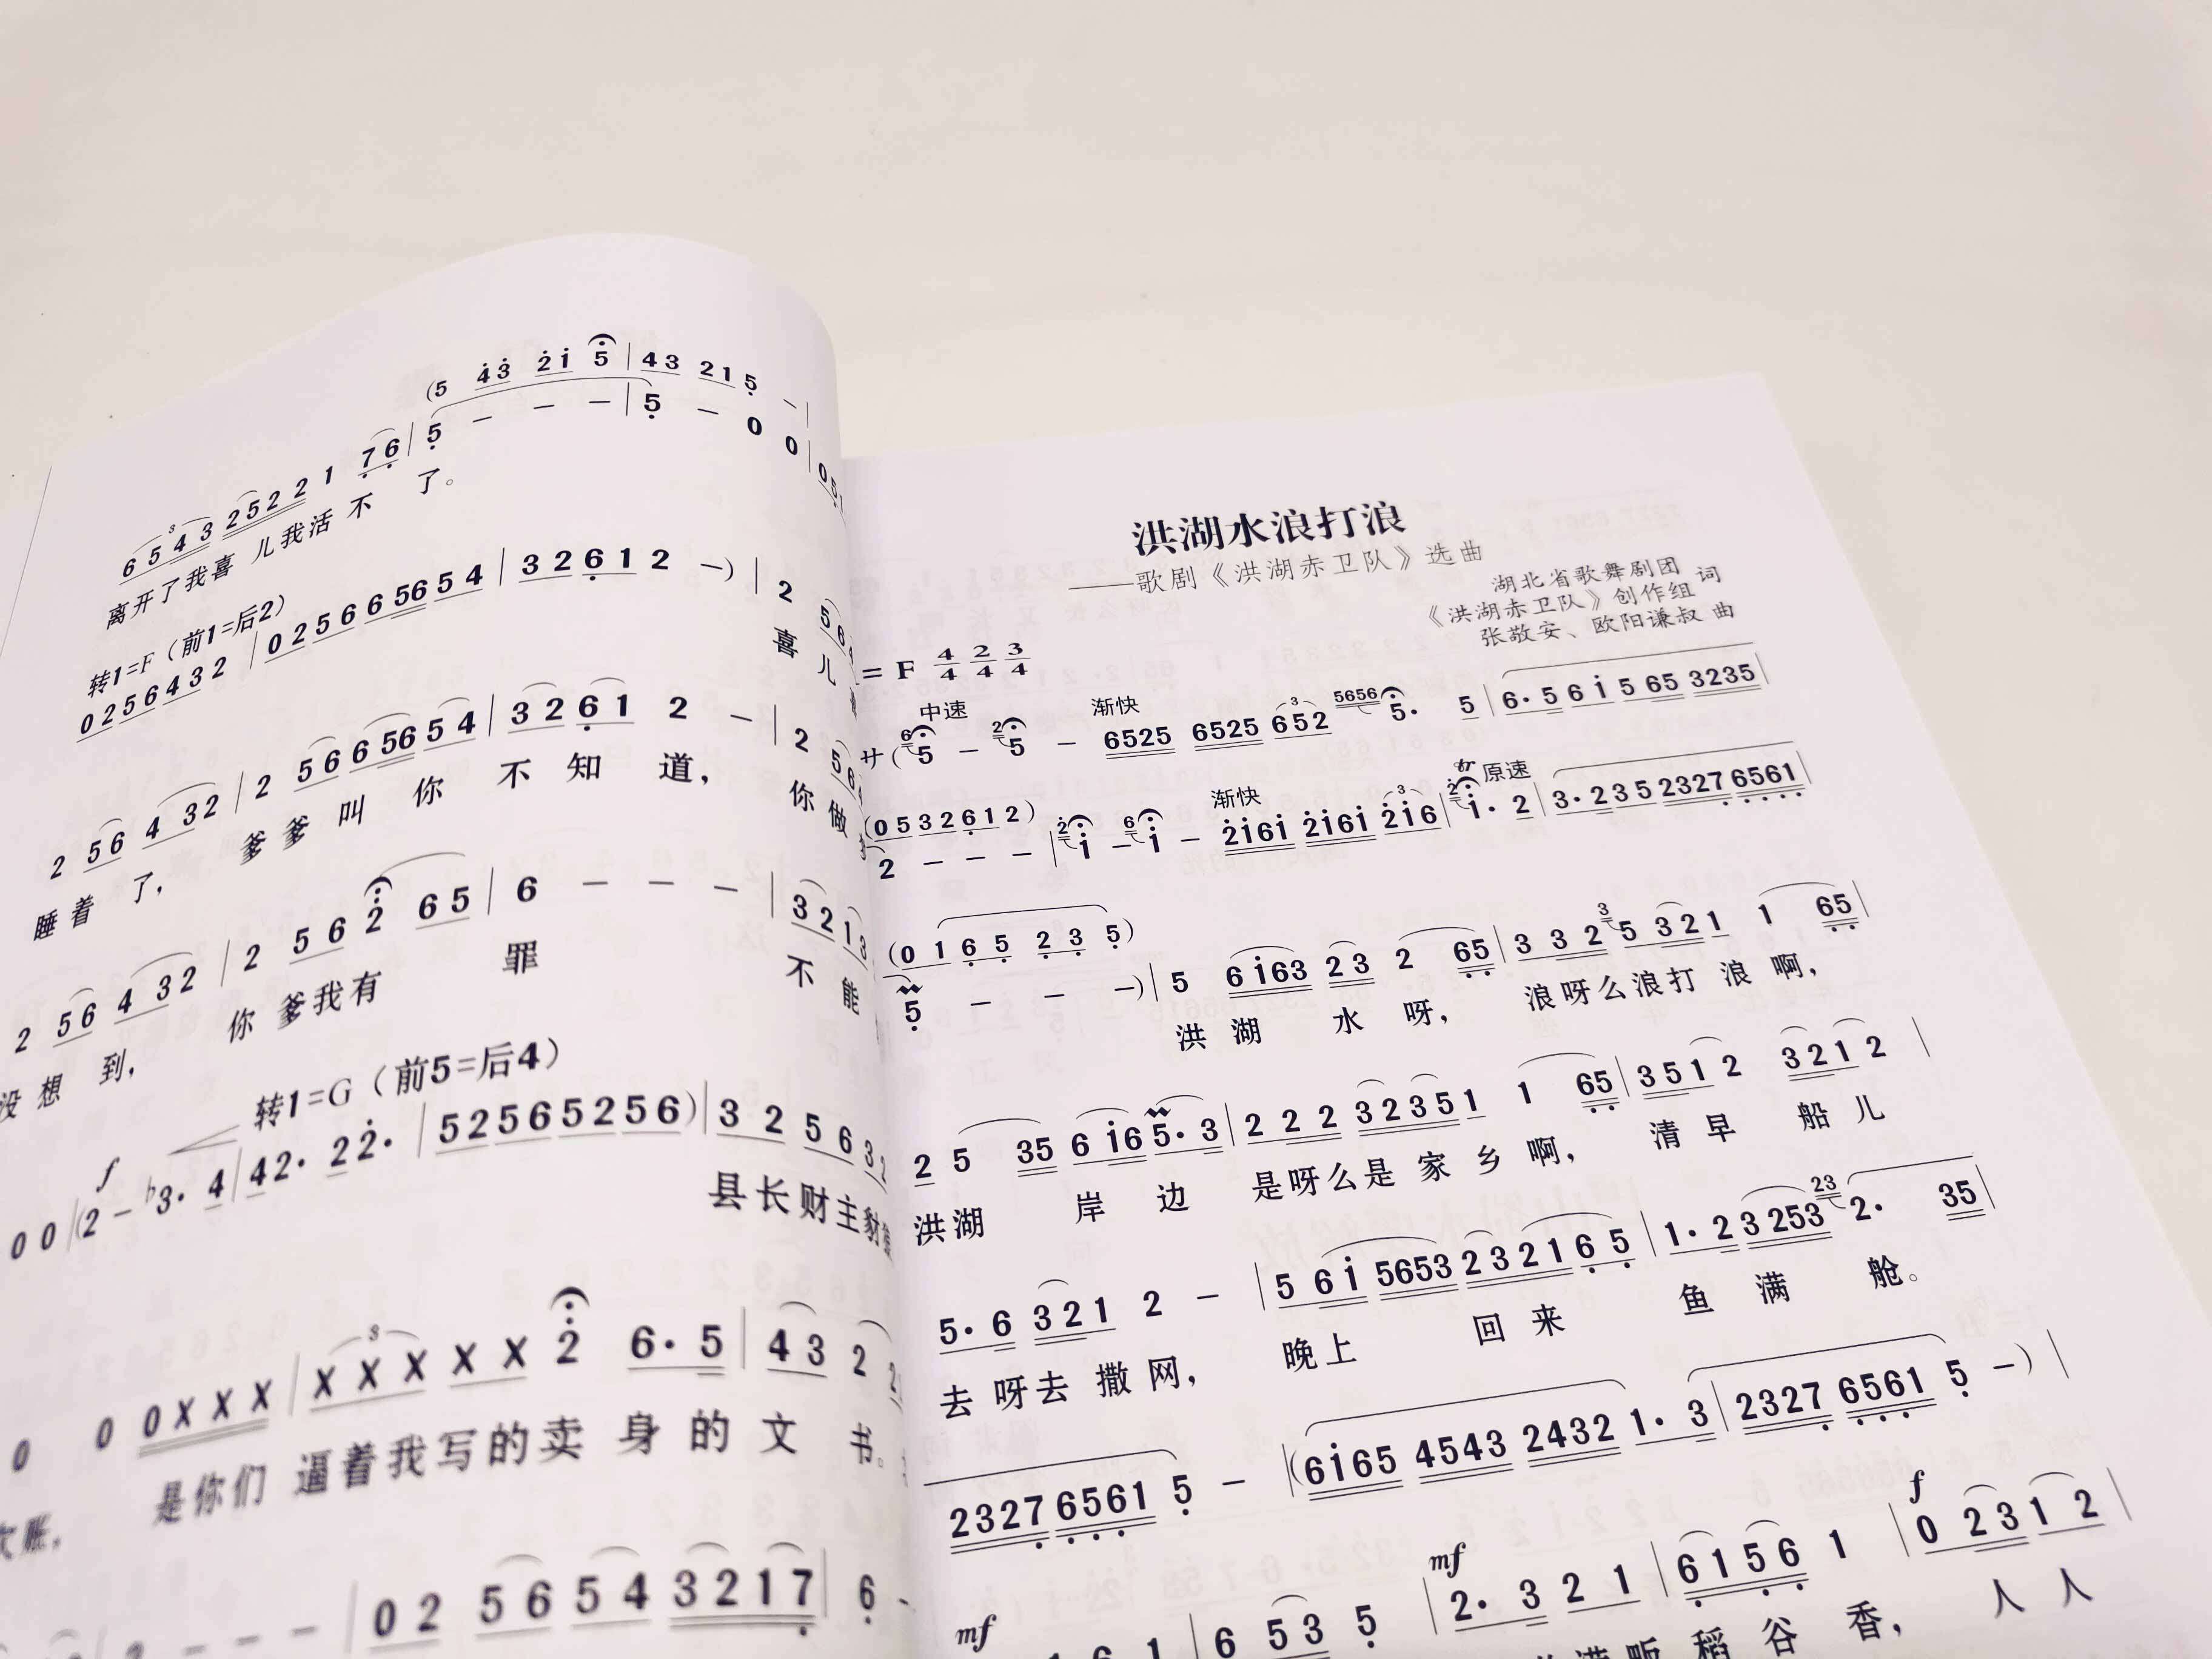 (5 4̇3̇ 2̇1̇ 5 | 43 215̣ – |
6543 2522 1 7̣6̣ | 5̣ – – – | 5̣ – 0 0 |
离开了我喜 儿我活 不 了。
转1=F（前1=后2）
0256432 | 02566 5654 | 326̣1 2 –) | 2
喜 儿
2 56 432 | 2 566 5654 | 326̣1 2 – | 2
睡着 了， 爹爹叫 你 不 知 道， 你做
2 56 432 | 2 56 2̇ 65 | 6 – – – | 321
没想 到， 你爹我有 罪 不能
转1=G（前5=后4）
f
0 0 | (2 – ♭3· 4 | 42· 22̇· | 52565256) | 32 56
县长财主
3
0 0 0XXX | XXX XX 2̇ 6·5 | 43 2
账， 是你们 逼着我写的卖 身 的 文 书。
– – – | 02 56 54 3217̣ | 6̣ –
洪湖水浪打浪
——歌剧《洪湖赤卫队》选曲
湖北省歌舞剧团
《洪湖赤卫队》创作组 词
张敬安、欧阳谦叔 曲
= F 4/4 2/4 3/4
中速 渐快
サ( 6 5 – 2 5 – 6525 6525 652 5656 5· 5 | 6·561̇ 565 3235 |
渐快 tr 原速
(05326̣12)
2 – – – | 2̇ 1̇ – 6 1̇ – 2̇1̇61̇ 2̇1̇61̇ 2̇1̇6 | 2̇ 1̇· 2 | 3·235 2327̣ 6̣5̣6̣1̣ |
(0 1 6̣ 5̣ 2̣ 3̣ 5̣)
5̣ – – –) | 5 61̇63 23 2 6̣5̣ | 3 32 3 5 321 1 6̣5̣ |
洪 湖 水 呀， 浪呀么浪打 浪 啊，
2 5 35 61̇6 5·3 | 2 22 32351 1 6̣5̣ | 351 2 3212 |
洪湖 岸 边 是呀么是 家 乡 啊， 清 早 船 儿
5·6 321 2 – | 561̇ 5653 23216̣5̣ | 1·23253 23 2· 35 |
去 呀去 撒 网， 晚上 回 来 鱼 满 舱。
2327̣ 6̣5̣6̣1 5̣ – | (61̇65 4543 2432 1·3 | 2327̣ 6̣5̣6̣1 5̣ –) |
mf mf f
1 6 1 | 6 53 5̣ | 2·3 21 | 6̣15̣6̣ 1 | 0 231 2 |
满 稻 谷 香， 人 人